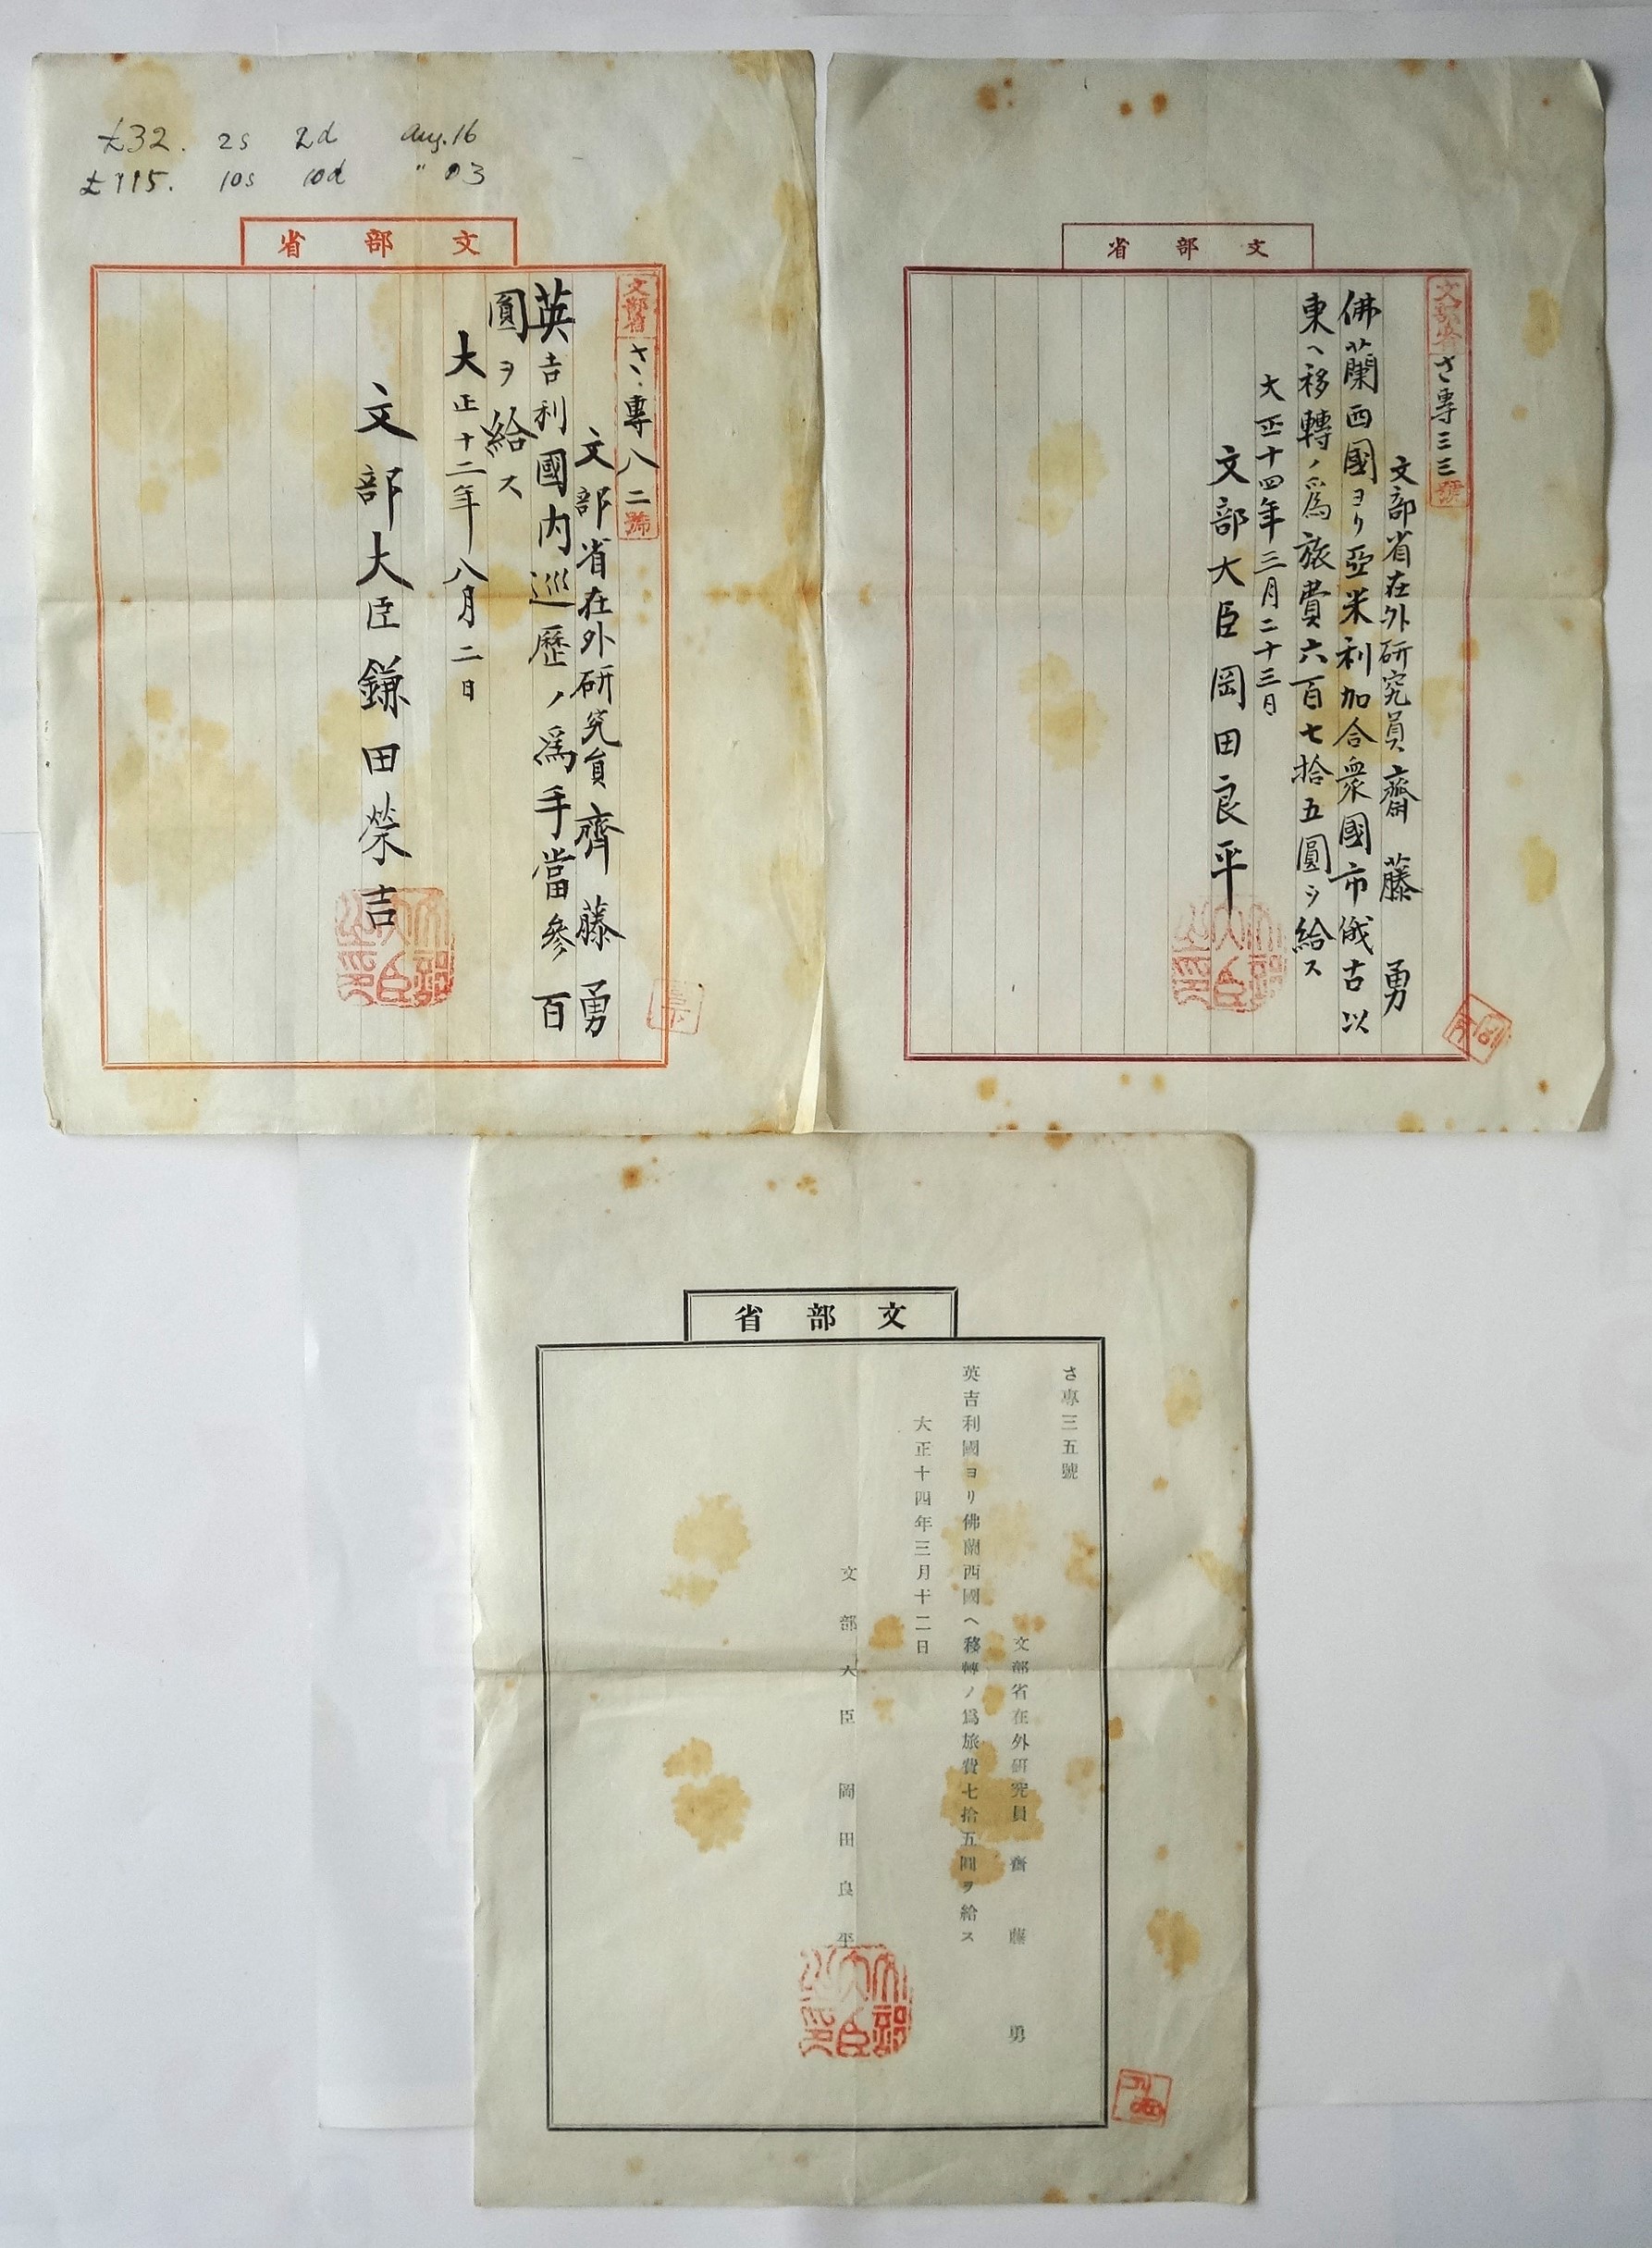 £32. 2s 2d Aug. 16
£115. 10s 10d " 
文部省
文部省さ專八二號
文部省在外研究員齊藤勇
英吉利國内巡歷ノ爲手當參百
圓ヲ給ス
大正十二年八月二日
文部大臣鎌田榮吉
文部省
文部省さ專三三號
文部省在外研究員齋藤勇
佛蘭西國ヨリ亞米利加合衆國市俄古以
東ヘ移轉ノ爲旅費六百七拾五圓ヲ給ス
大正十四年三月二十三日
文部大臣岡田良平
文部大臣之印
文部省
さ專三五號
文部省在外研究員齋藤勇
英吉利國ヨリ佛蘭西國ヘ移轉ノ爲旅費七拾五圓ヲ給ス
大正十四年三月十二日
文部大臣岡田良平
文部大臣之印